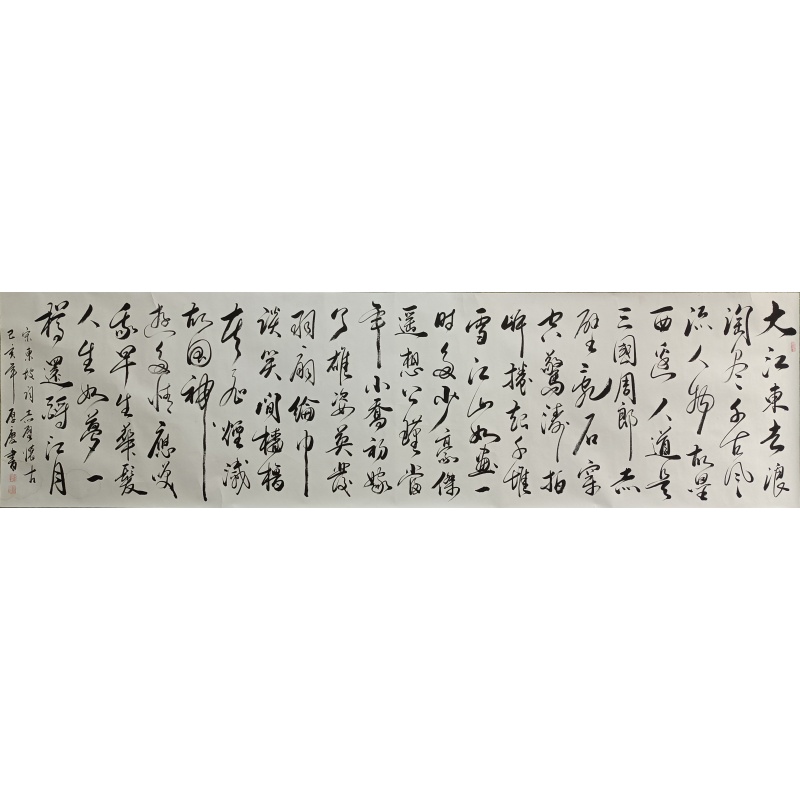 大江東去浪
淘尽千古風
流人物故壘
西邊人道是
三國周郎赤
壁亂石穿
空驚濤拍
岸捲起千堆
雪江山如畫一
时多少豪傑
遥想公瑾當
年小喬初嫁
了雄姿英發
羽扇綸巾
談笑間檣櫓
灰飛煙滅
故国神
遊多情應笑
我早生華髮
人生如夢一
樽還酹江月
宋東坡词赤壁懷古
己亥年 書